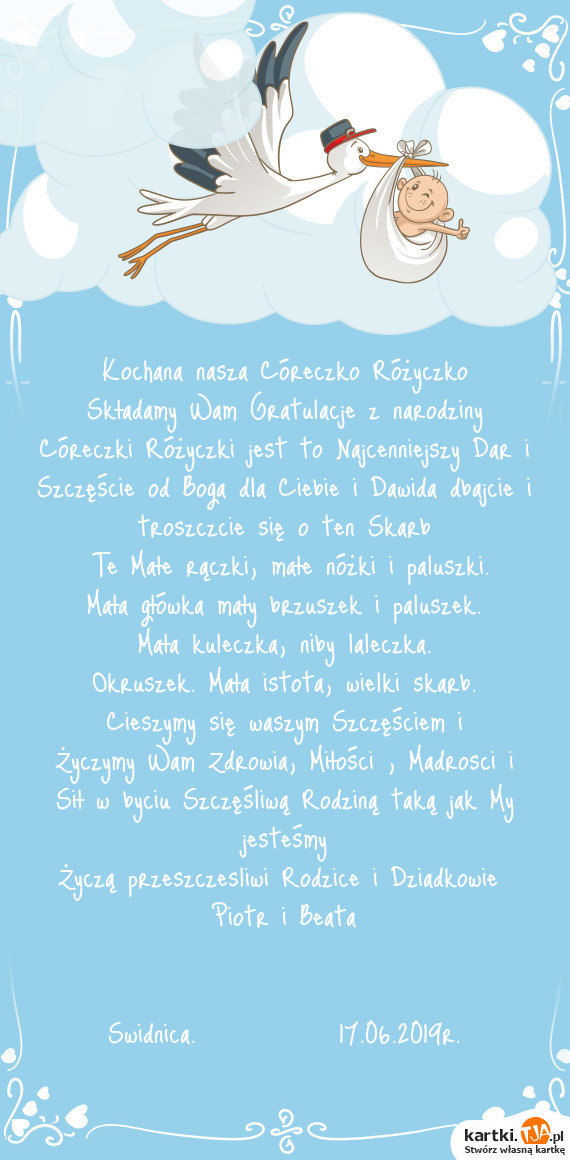 Kochana nasza Córeczko Różyczko
Składamy Wam Gratulacje z narodziny
Córeczki Różyczki jest to Najcenniejszy Dar i
Szczęście od Boga dla Ciebie i Dawida dbajcie i
troszczcie się o ten Skarb
Te Małe rączki, małe nóżki i paluszki.
Mała główka mały brzuszek i paluszek.
Mała kuleczka, niby laleczka.
Okruszek. Mała istota, wielki skarb.
Cieszymy się waszym Szczęściem i
Życzymy Wam Zdrowia, Miłości , Madrosci i
Sił w byciu Szczęśliwą Rodziną taką jak My
jesteśmy
Życzą przeszczesliwi Rodzice i Dziadkowie
Piotr i Beata
Swidnica. 17.06.2019r.
kartki.TJA.pl
Stwórz własną kartkę